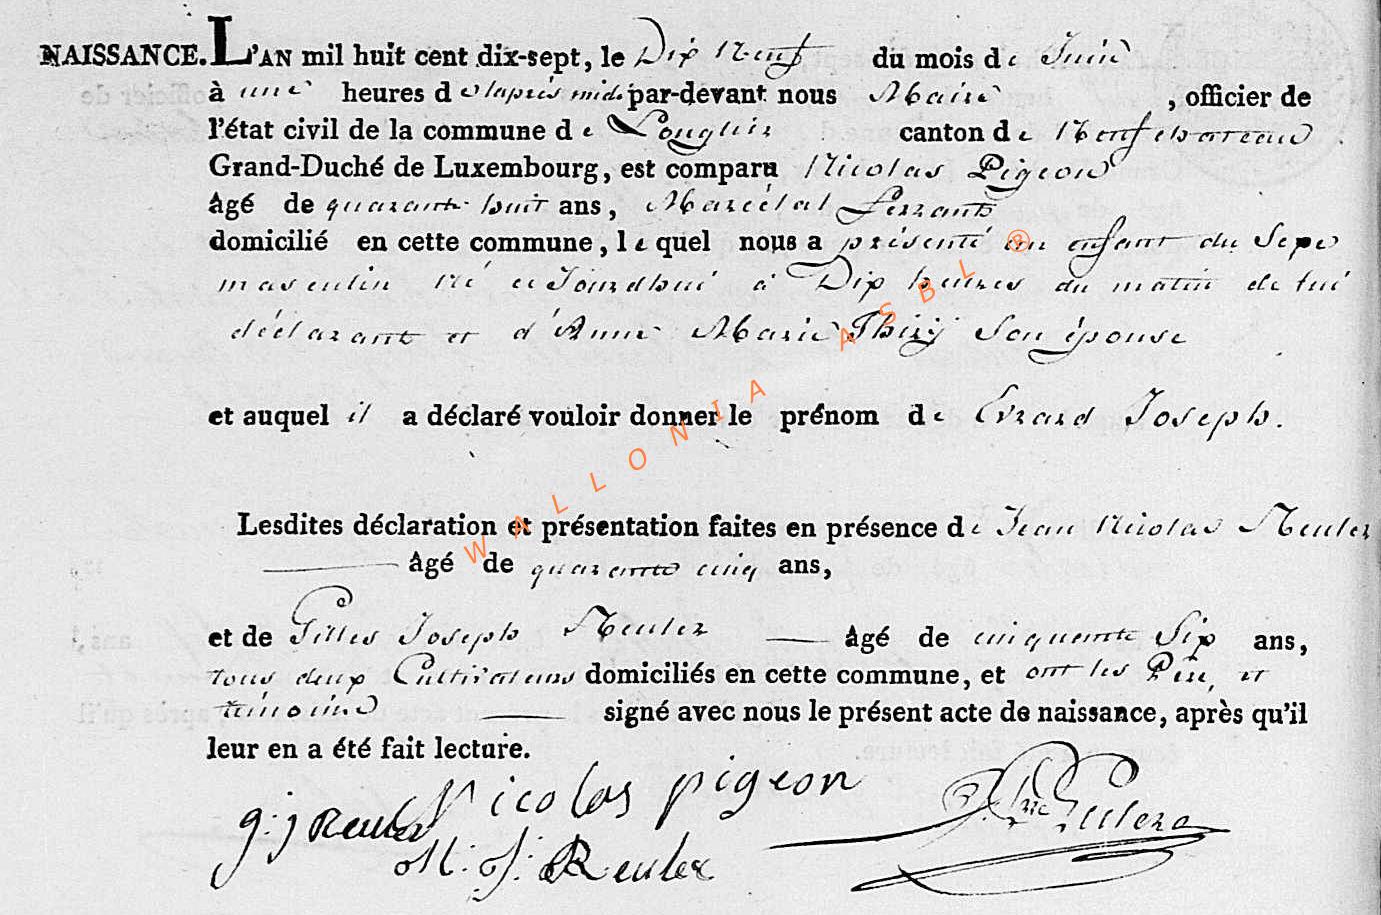 NAISSANCE. L'AN mil huit cent dix-sept, le Dix Neuf du mois de Juin
à une heures de l'après midi par-devant nous Maire, officier de
l'état civil de la commune de Longlier canton de Neufchateau
Grand-Duché de Luxembourg, est comparu Nicolas Pigeon
âgé de quarante huit ans, Maréchal ferrant
domicilié en cette commune, lequel nous a présenté un enfant du Sexe
masculin né cejourdhui à Dix heures du matin de lui
déclarant et d'Anne Marie Thiry Son épouse
et auquel il a déclaré vouloir donner le prénom de Evrard Joseph.
Lesdites déclaration et présentation faites en présence de Jean Nicolas Reuler
âgé de quarante cinq ans,
et de Gilles Joseph Reuler âgé de cinquante Six ans,
tous deux Cultivateurs domiciliés en cette commune, et ont les Père, et
témoins signé avec nous le présent acte de naissance, après qu'il
leur en a été fait lecture.
Nicolas pigeon
g: j Reuler
N: J: Reuler
WALLONIA ASBL ®